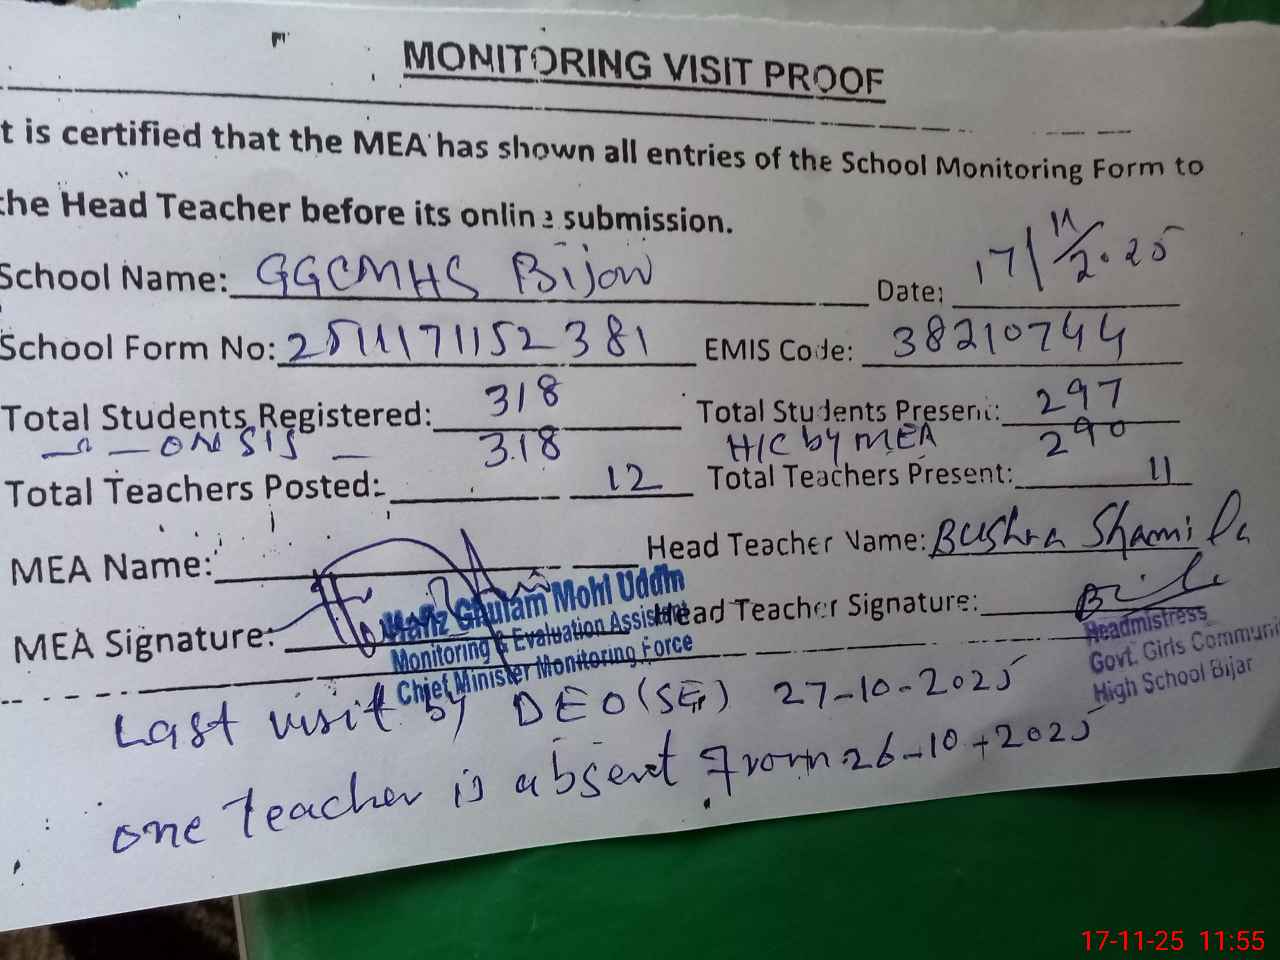 MONITORING VISIT PROOF
t is certified that the MEA has shown all entries of the School Monitoring Form to
the Head Teacher before its online submission.
School Name: GGCMHS Bijow Date: 17/11/2025
School Form No: 2511171152381 EMIS Code: 38210744
Total Students Registered: 318 Total Students Present: 297
on SIS 318 H/C by MEA 290
Total Teachers Posted: 12 Total Teachers Present: 11
MEA Name: Head Teacher Name: Bushra Shamila
MEA Signature: Head Teacher Signature:
Hafiz Ghulam Mohi Uddin
Monitoring & Evaluation Assistant
Chief Minister Monitoring Force
Headmistress
Govt. Girls Communi
High School Bijar
Last visit by DEO (SE) 27-10-2025
one teacher is absent from 26-10-2025
17-11-25 11:55